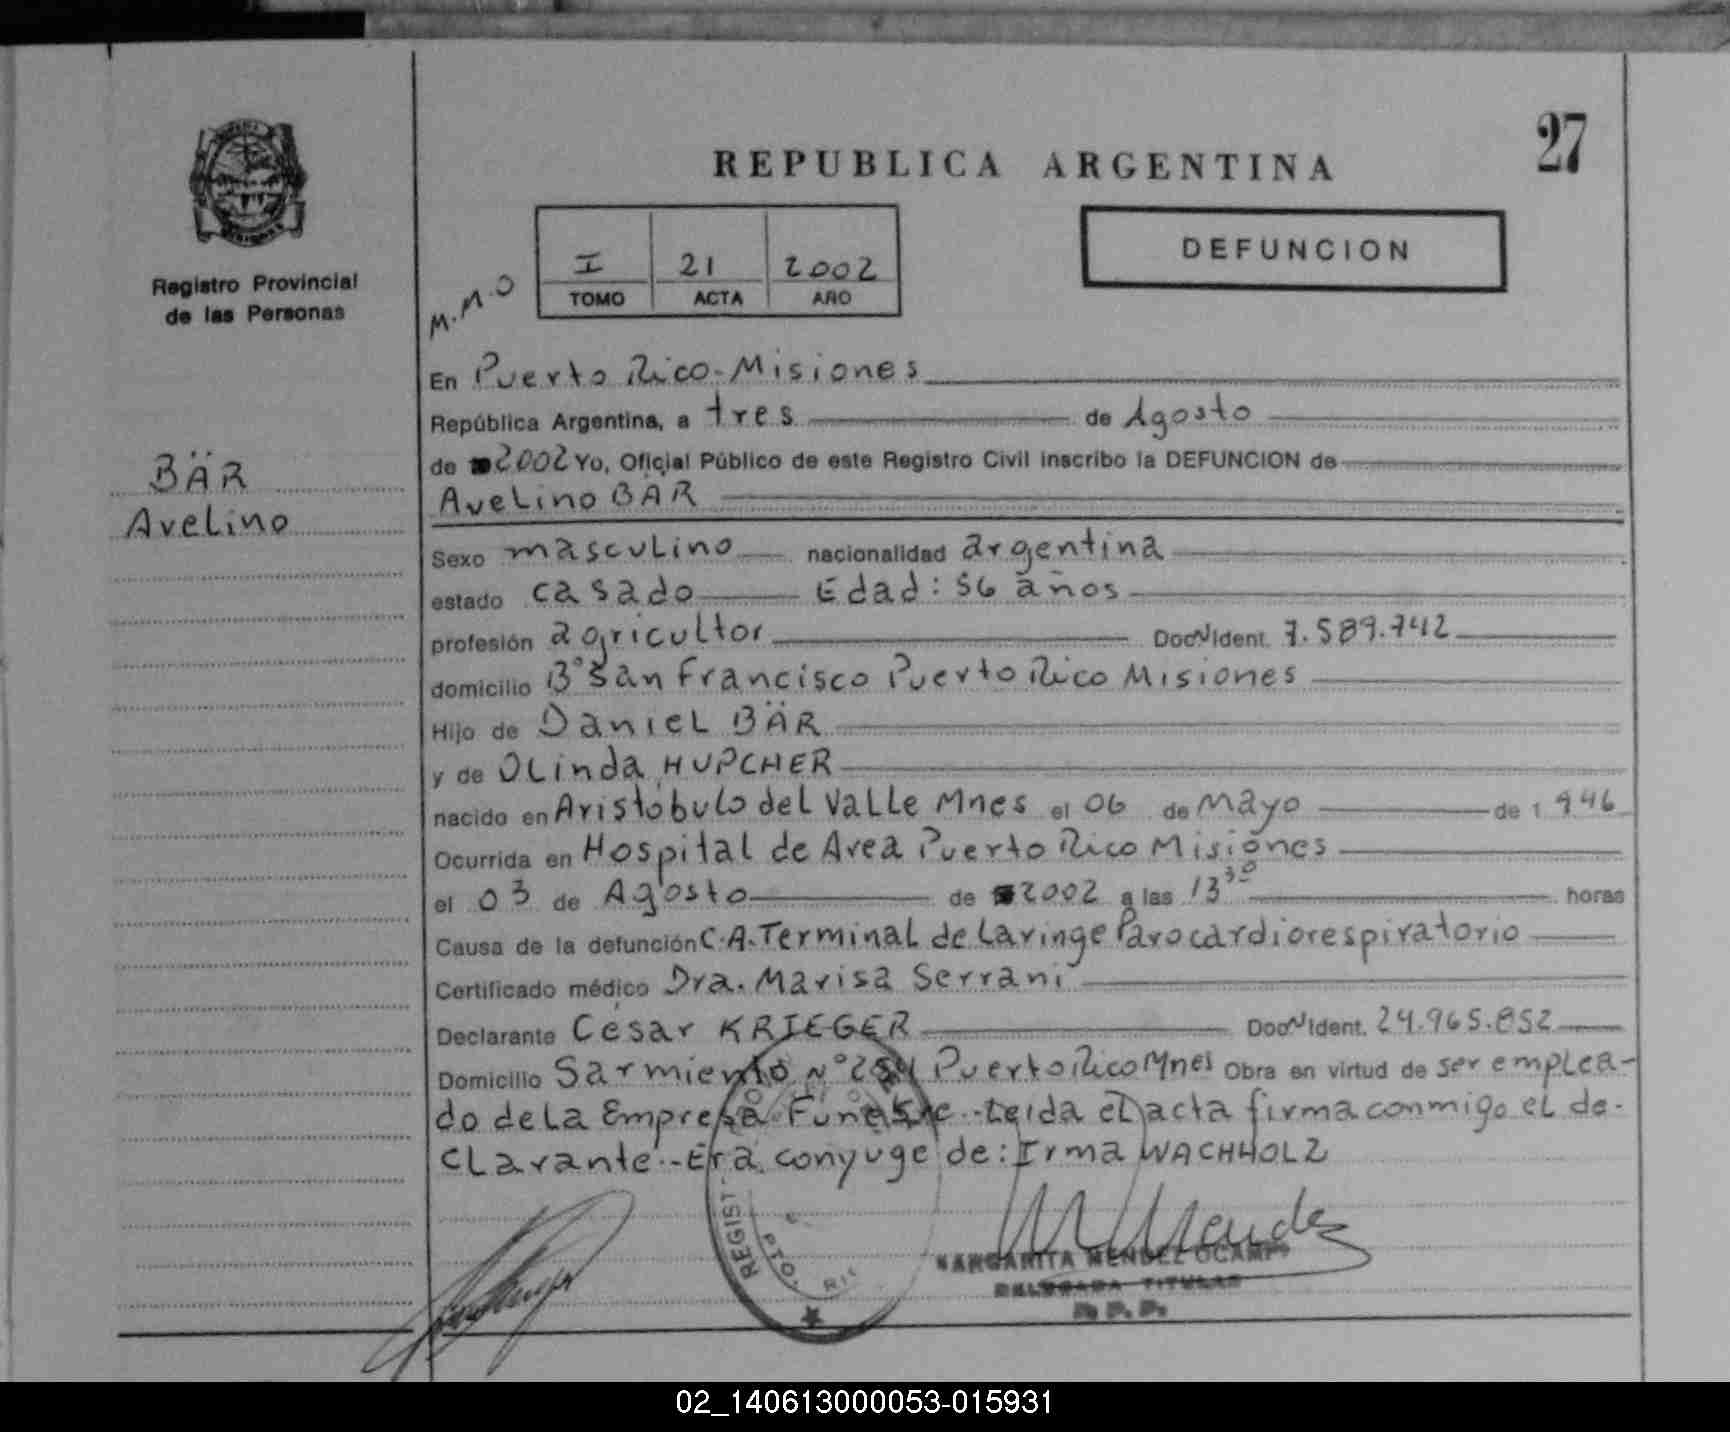 27
REPUBLICA ARGENTINA
DEFUNCION
I 21 2002
TOMO ACTA AÑO
M.M.O
Registro Provincial
de las Personas
BÄR
Avelino
En Puerto Rico-Misiones
República Argentina, a tres de Agosto
de 2002 Yo, Oficial Público de este Registro Civil inscribo la DEFUNCION de
Avelino BÄR
Sexo masculino nacionalidad argentina
estado casado Edad: 56 años
profesión agricultor Doc Ident. 7.589.742
domicilio B° San Francisco Puerto Rico Misiones
Hijo de Daniel BÄR
y de Olinda HUPCHER
nacido en Aristóbulo del Valle Mnes el 06 de Mayo de 1946
Ocurrida en Hospital de Area Puerto Rico Misiones
el 03 de Agosto de 2002 a las 13 30 horas
Causa de la defunción C.A. Terminal de Laringe Parocardiorespiratorio
Certificado médico Dra. Marisa Serrani
Declarante César KRIEGER Doc Ident. 24.965.852
Domicilio Sarmiento N° Puerto Rico Mnes Obra en virtud de ser emplea-
do de la Empresa Leida el acta firma conmigo el de-
clarante.-Era conyuge de: Irma WACHHOLZ
REGIST
MARGARITA MENDEZ OCAMPO
DELEGADA TITULAR
R.P.P.
02_140613000053-015931